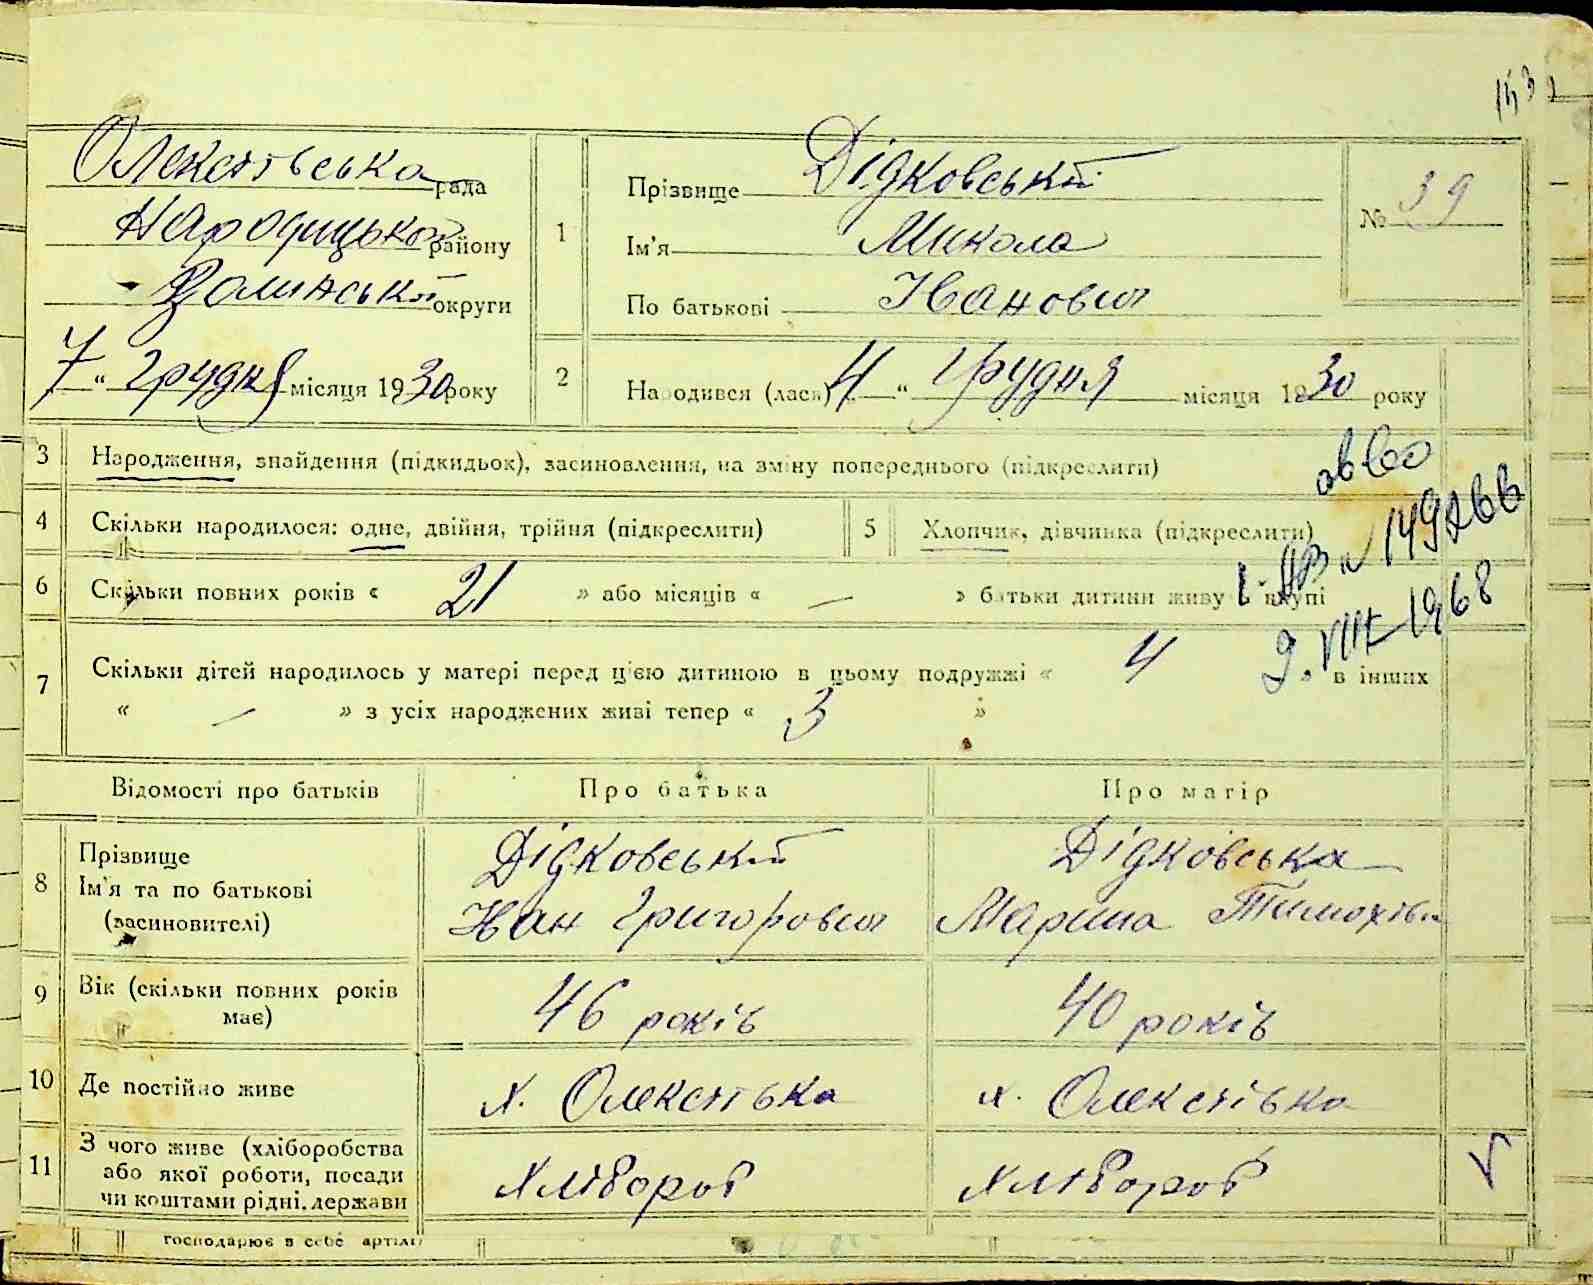 153
Олексіївська рада
Народицького району
Волинської округи
7 " Грудня місяця 1930 року
1
Прізвище Дідковський
Ім'я Микола
По батькові Іванович
№ 39
2
Народився (лася) 4 " Грудня місяця 1930 року
3 Народження, знайдення (підкидьок), засиновлення, на зміну попереднього (підкреслити)
4 Скільки народилося: одне, двійня, трійня (підкреслити)
5 Хлопчик, дівчинка (підкреслити)
I-ЯВ № 149266
9.VIII-1968
6 Скільки повних років « 21 » або місяців « — » батьки дитини живуть вкупі
7 Скільки дітей народилось у матері перед цією дитиною в цьому подружжі « 4 » в інших
« — » з усіх народжених живі тепер « 3 »
Відомості про батьків
Про батька
Про матір
8 Прізвище
Ім'я та по батькові
(засиновителі)
Дідковський
Іван Григорович
Дідковська
Марина Тимохівн
9 Вік (скільки повних років
має)
46 років
40 років
10 Де постійно живе
х. Олексіївка
х. Олексіївка
11 З чого живе (хліборобства
або якої роботи, посади
чи коштами рідні, держави
Хлібороб
Хлібороб
господарює в себе артілі